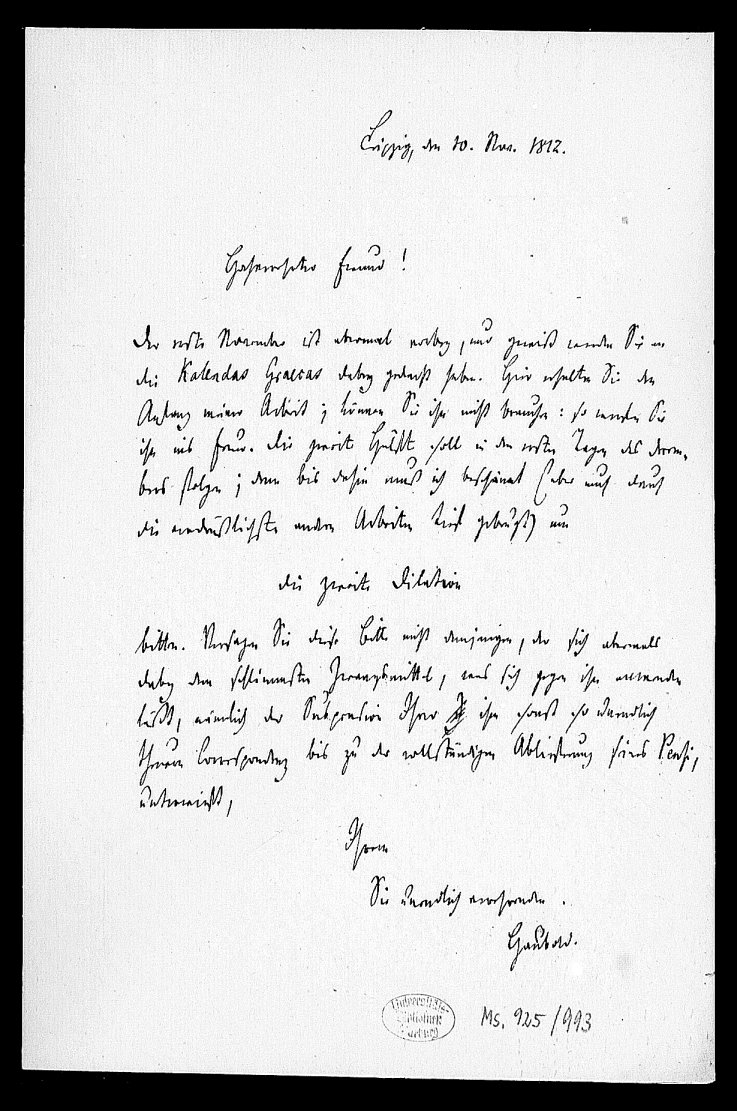 Leipzig, den 10. Nov. 1812.
Hochverehrter Freund!
Der erste November ist abermal vorbey, und gewiß werden Sie an
die Kalendas Graecas dabey gedacht haben. Hier erhalten Sie den
Anfang meiner Arbeit; können Sie ihn nicht brauchen: so werfen Sie
ihn ins Feuer. Die zweite Hälfte soll in den ersten Tagen des Decem-
bers folgen; denn bis dahin muß ich beschämt (aber auch durch
die verdrüßlichsten andern Arbeiten tief gebeugt) um
die zweite Dilation
bitten. Versagen Sie diese Bitte nicht demjenigen, der sich abermals
dabey dem schlimmsten Zwangsmittel, was sich gegen ihn anwenden
läßt, nämlich der Suspension Ihrer ihm sonst so unendlich
theuern Correspondenz bis zu der vollständigen Ablieferung seines Pensi,
unterwirft,
Ihrem
Sie unendlich verehrenden
Haubold.
Universitäts-
Bibliothek
Marburg
Ms. 925/993